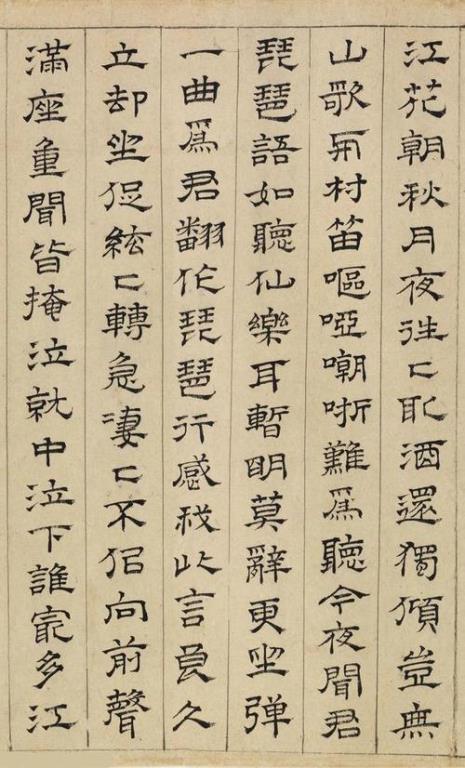 江花朝秋月夜往〻取酒還獨傾豈無
山歌與村笛嘔啞嘲哳難爲聽今夜聞君
琵琶語如聽仙樂耳暫明莫辭更坐弹
一曲爲君翻作琵琶行感我此言良久
立却坐促絃〻轉急凄〻不佀向前聲
滿座重聞皆掩泣就中泣下誰寂多江